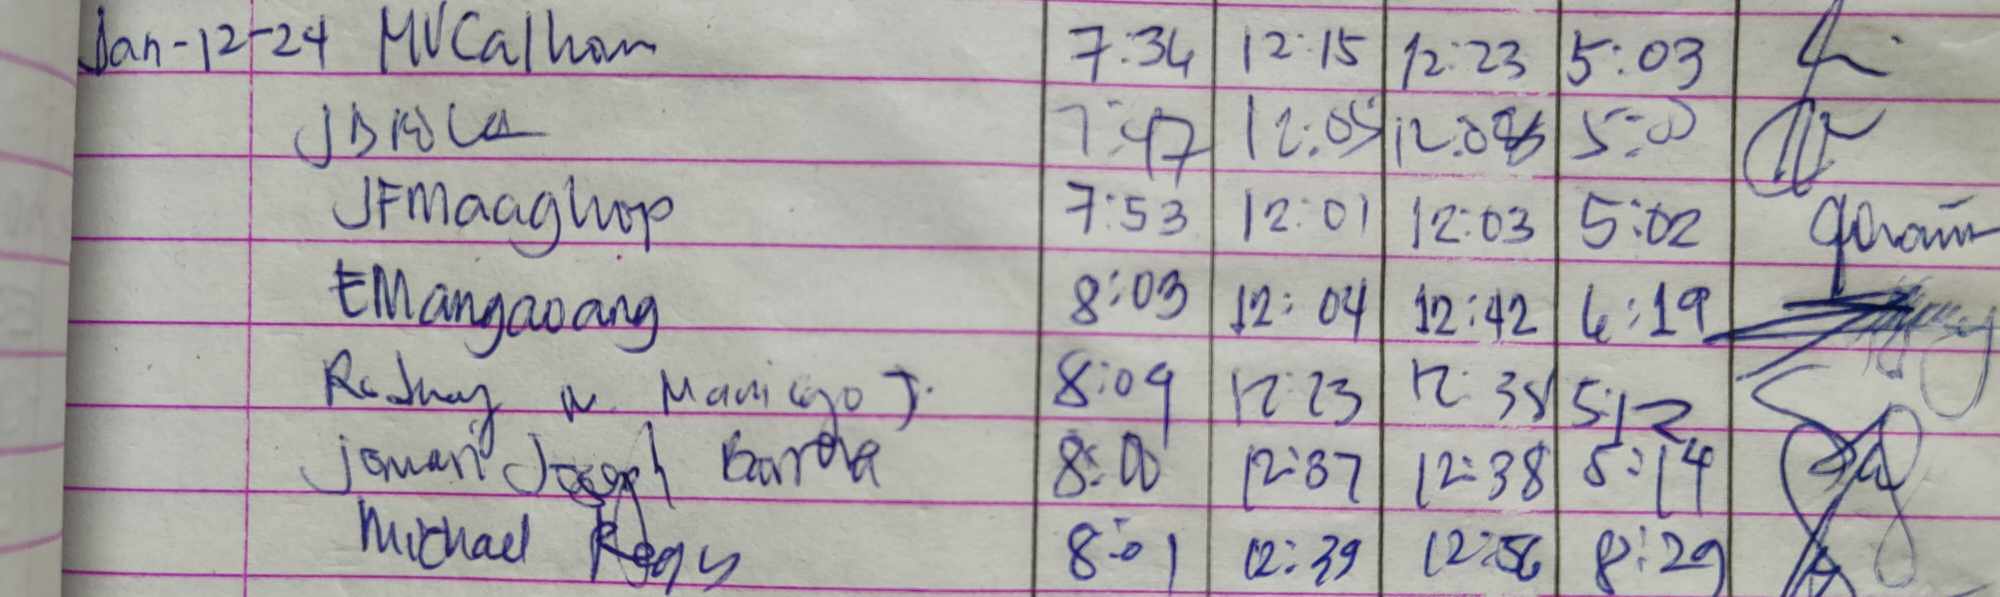 Jan-12-24 MVCalhom 7:34 12:15 12:23 5:03
7:47 12:05 5:00
JFMaaghop 7:53 12:01 12:03 5:02
EMangaoang 8:03 12:04 12:42 6:19
N. 8:09 12:23 12:38 5:12
Jomari Joseph 8:00 12:37 12:38 5:14
Michael 8:01 12:39 12:56 8:29